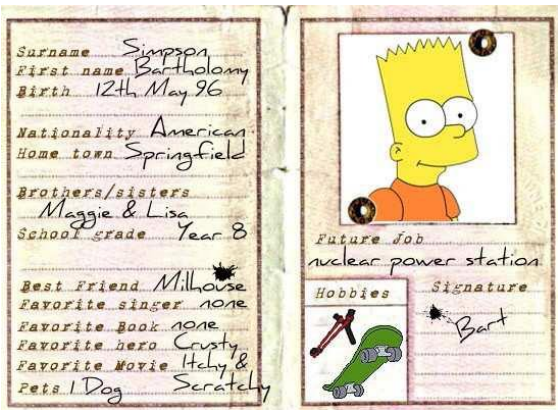 Surname Simpson
First name Bartholomy
Birth 12th May 96
Nationality American
Home town Springfield
Brothers/sisters
Maggie & Lisa
School grade Year 8
Best Friend Milhouse
Favorite singer none
Favorite Book none
Favorite hero Crusty
Favorite Movie Itchy &
Scratchy
Pets 1 Dog
Future Job
nuclear power station
Hobbies
Signature
Bart